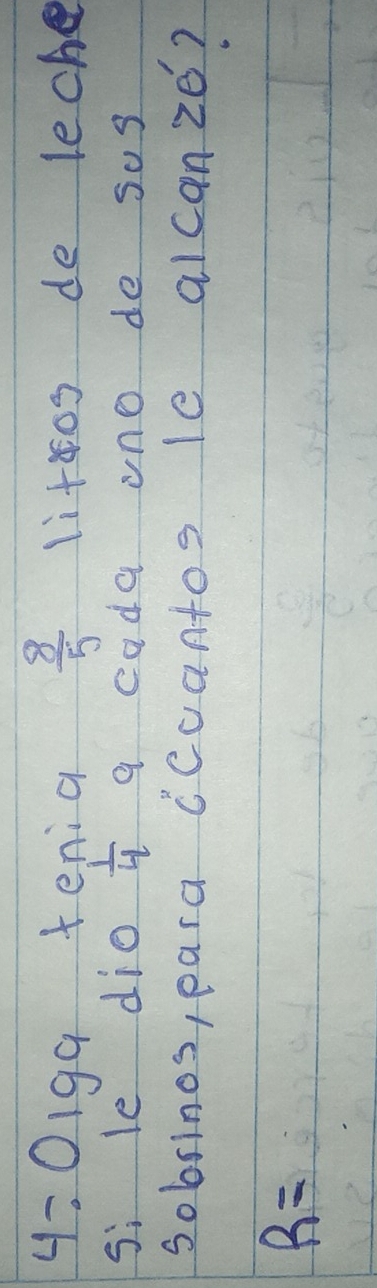 4-. Olga tenia 8/5 litros de leche
si le dio 1/4 a cada uno de sus
sobrinos, para ¿Cuantos le alcanzó?
R=